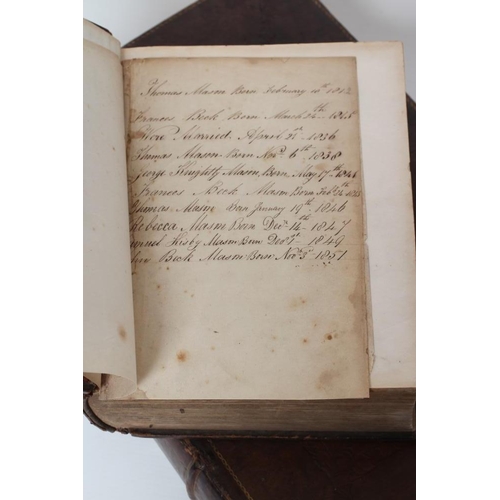 Thomas Mason Born February 10th 1812
Frances Beck Born March 24th
Were Married April 21st 1836
Thomas Mason Born Novr 6th 1838
George Knightly Mason Born May 17th
Frances Beck Mason Born Feby 24th
Thomas Mason Born January 19th 1846
Rebecca Mason Born Decr 14th 1847
Samuel Kisby Mason Born Decr 1st 1849
Beck Mason Born Novr 3rd 1851